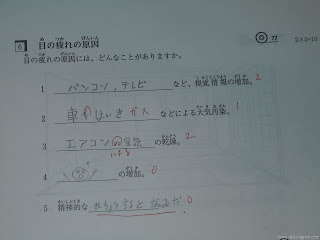 6 目の疲れの原因 77 2×5=10
目の疲れの原因には、どんなことがありますか。
1 パソコン、テレビ など、視覚情報の増加。 2
2 車のはいきガス などによる大気汚染。 1
3 エアコンの による の乾燥。 2
4 の増加。 0
5 精神的な きんちょうすると なみだ 0